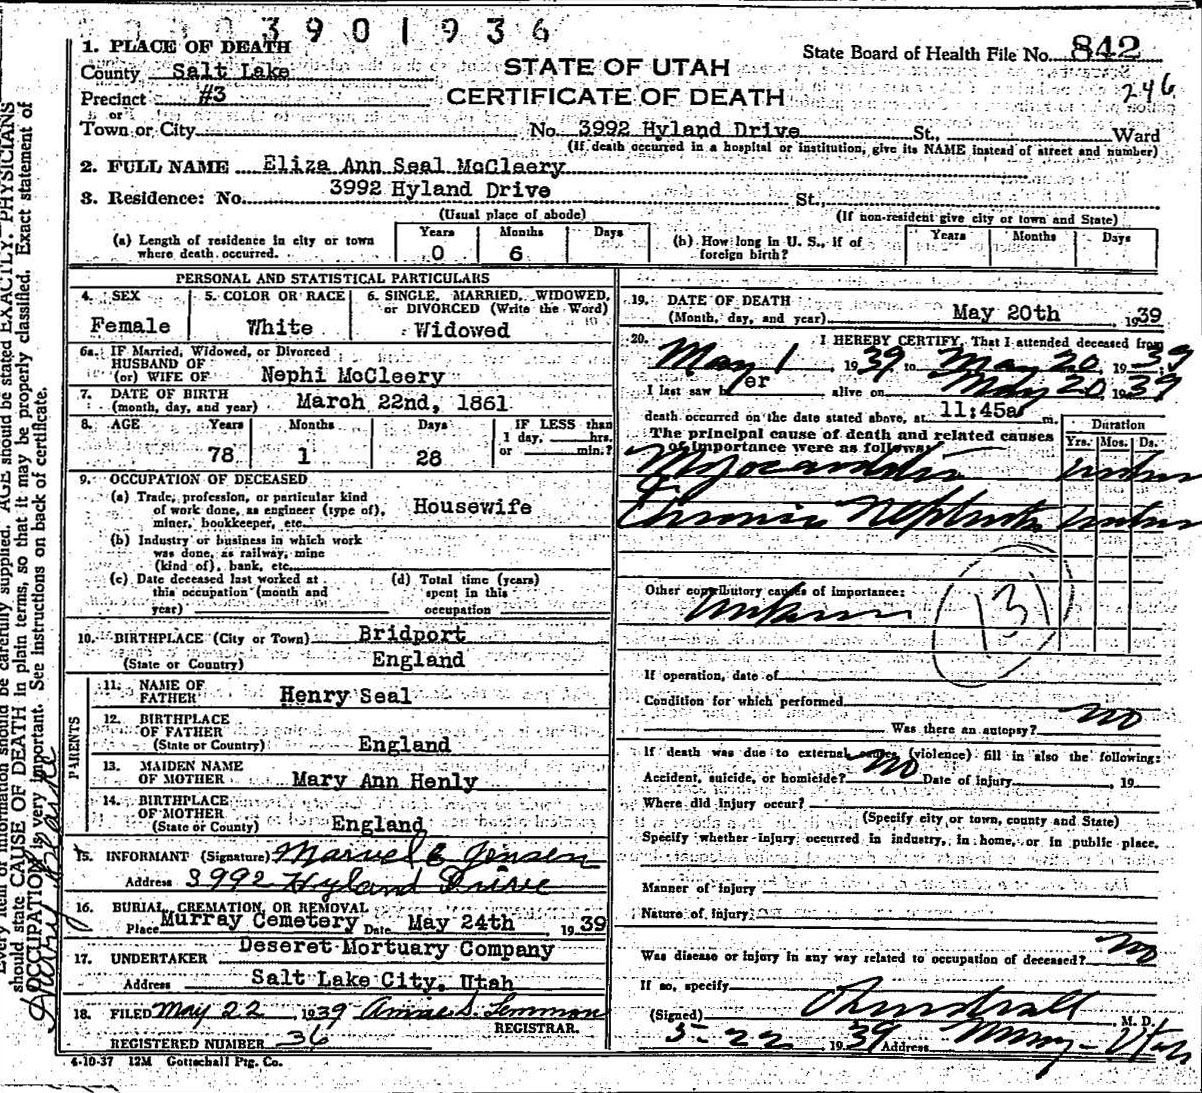 0390 1936
1. PLACE OF DEATH
State Board of Health File No. 842
County Salt Lake
STATE OF UTAH
246
Precinct #3
CERTIFICATE OF DEATH
or
Town or City No. 3992 Hyland Drive St., Ward
(If death occurred in a hospital or institution, give its NAME instead of street and number)
2. FULL NAME Eliza Ann Seal McCleery
3. Residence: No. 3992 Hyland Drive St.,
(Usual place of abode) (If non-resident give city or town and State)
(a) Length of residence in city or town where death occurred. Years 0 Months 6 Days
(b) How long in U. S., if of foreign birth? Years Months Days
PERSONAL AND STATISTICAL PARTICULARS
4. SEX Female
5. COLOR OR RACE White
6. SINGLE, MARRIED, WIDOWED, or DIVORCED (Write the Word) Widowed
6a. IF Married, Widowed, or Divorced
HUSBAND OF
(or) WIFE OF Nephi McCleery
7. DATE OF BIRTH
(month, day, and year) March 22nd, 1861
8. AGE Years 78 Months 1 Days 28
IF LESS than 1 day, hrs. or min.?
9. OCCUPATION OF DECEASED
(a) Trade, profession, or particular kind of work done, as engineer (type of), miner, bookkeeper, etc. Housewife
(b) Industry or business in which work was done, as railway, mine (kind of), bank, etc.
(c) Date deceased last worked at this occupation (month and year)
(d) Total time (years) spent in this occupation
10. BIRTHPLACE (City or Town) Bridport
(State or Country) England
PARENTS
11. NAME OF FATHER Henry Seal
12. BIRTHPLACE OF FATHER
(State or Country) England
13. MAIDEN NAME OF MOTHER Mary Ann Henly
14. BIRTHPLACE OF MOTHER
(State or County) England
15. INFORMANT (Signature) Marvel E Jensen
Address 3992 Hyland Drive
16. BURIAL, CREMATION, OR REMOVAL
Place Murray Cemetery Date May 24th, 1939
17. UNDERTAKER Deseret Mortuary Company
Address Salt Lake City, Utah
18. FILED May 22, 1939 Annie S. Lemmon
REGISTRAR.
REGISTERED NUMBER 36
4-10-37 12M Gottschall Ptg. Co.
19. DATE OF DEATH
(Month, day, and year) May 20th, 1939
20. I HEREBY CERTIFY, That I attended deceased from
May 1, 1939 to May 20, 1939
I last saw her alive on May 20 1939
death occurred on the date stated above, at 11:45a m.
The principal cause of death and related causes of importance were as follows:
Duration
Yrs. Mos. Ds.
Myocarditis
Chronic Nephritis
Other contributory causes of importance:
Unknown
131
If operation, date of
Condition for which performed
Was there an autopsy? no
If death was due to external causes (violence) fill in also the following:
Accident, suicide, or homicide? no Date of injury, 19
Where did injury occur?
(Specify city or town, county and State)
Specify whether injury occurred in industry, in home, or in public place.
Manner of injury
Nature of injury
Was disease or injury in any way related to occupation of deceased? no
If so, specify
(Signed) M. D.
5-22 1939 Address Murray - Utah
Every item of information should be carefully supplied. AGE should be stated EXACTLY. PHYSICIANS
should state CAUSE OF DEATH in plain terms, so that it may be properly classified. Exact statement of
OCCUPATION is very important. See instructions on back of certificate.